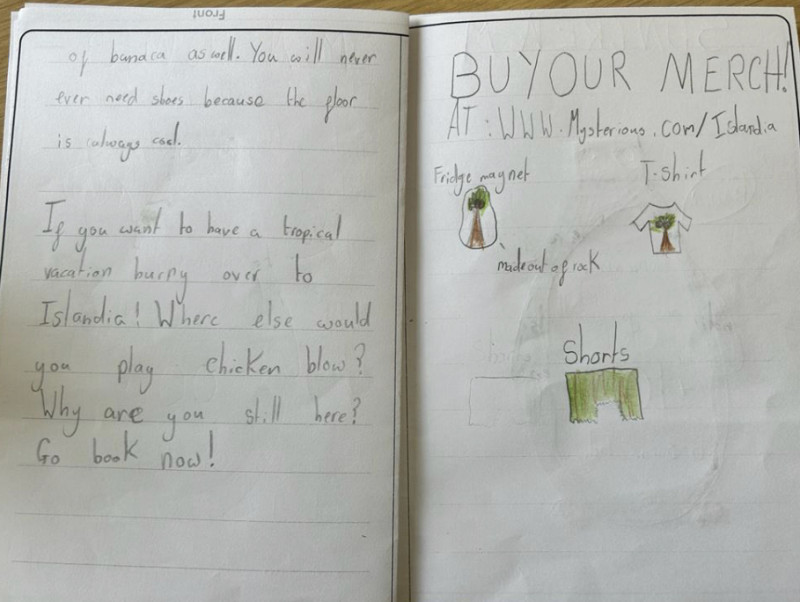 Front
of banaca as well. You will never
ever need shoes because the floor
is always cool.
If you want to have a tropical
vacation hurry over to
Islandia! Where else would
you play chicken blow?
Why are you still here?
Go book now!
BUYOUR MERCH!
AT: WWW.Mysterious.com/Islandia
Fridge magnet
T-shirt
made out of rock
Shorts